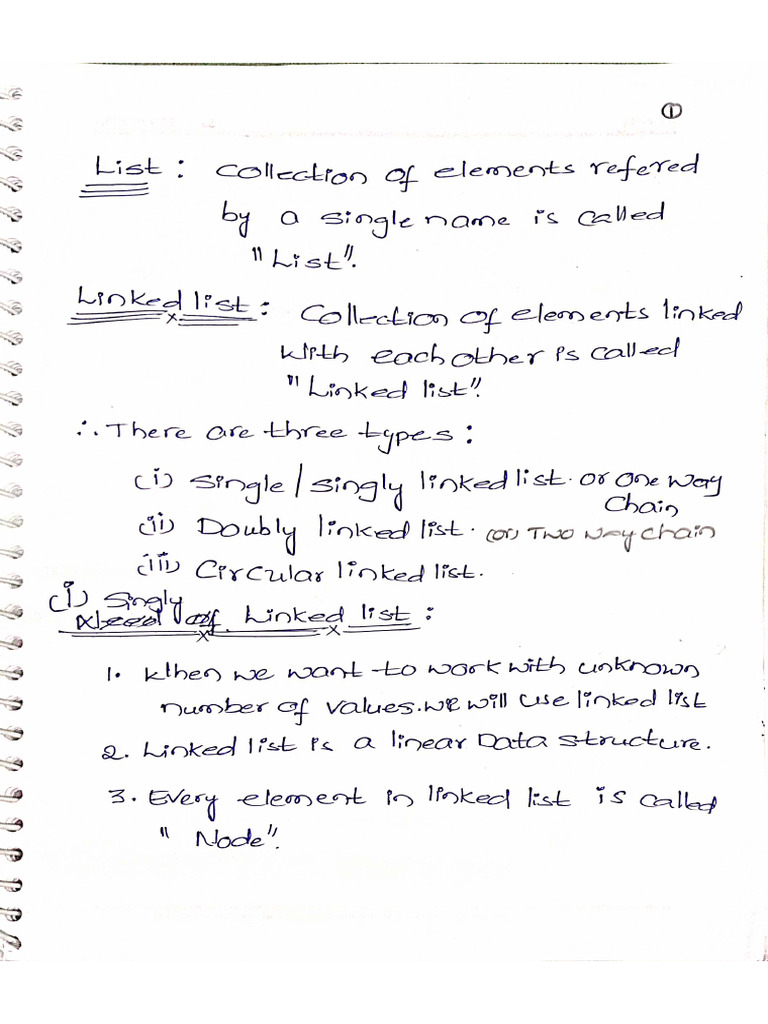 ①
List : Collection of elements refered
by a single name is called
"List".
Linked list : Collection of elements linked
with each other is called
"Linked list".
∴ There are three types :
(i) Single / Singly linked list. or one way
chain
(ii) Doubly linked list. (or) Two way chain
(iii) Circular linked list.
(i) Singly
Linked list :
1. When we want to work with unknown
number of values. we will use linked list
2. Linked list is a linear Data structure.
3. Every element in linked list is called
" Node".